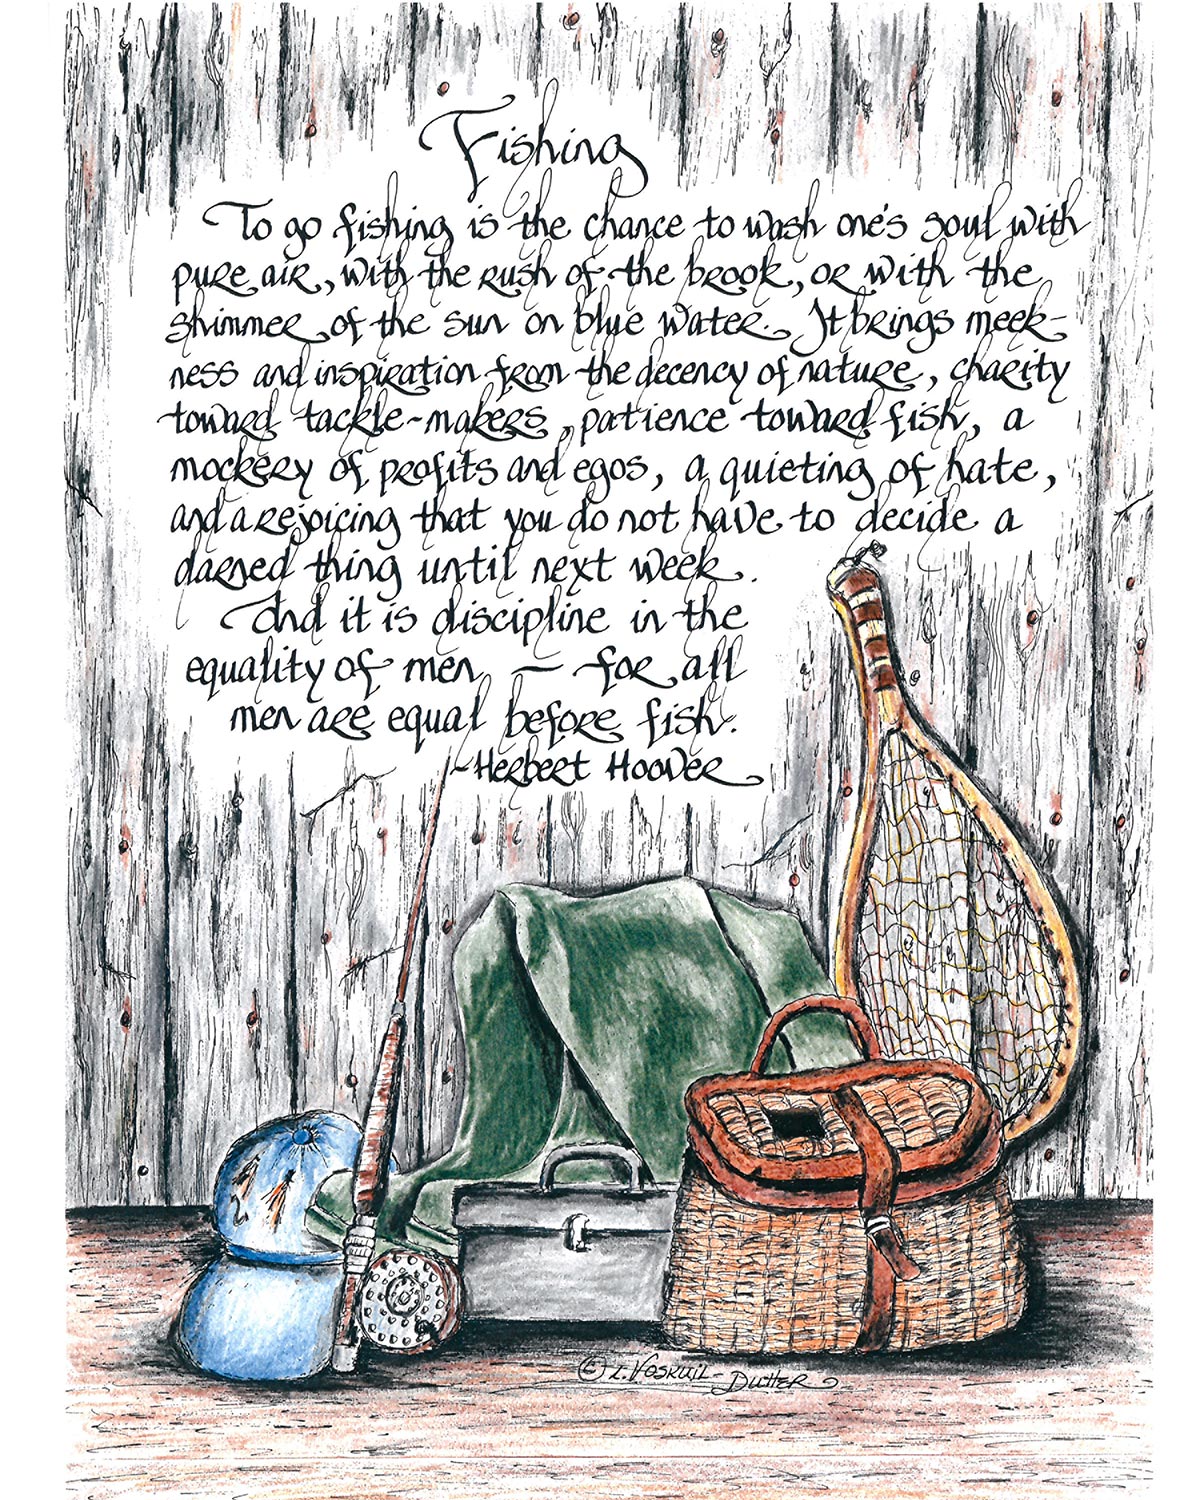 Fishing
To go fishing is the chance to wash one's soul with
pure air, with the rush of the brook, or with the
shimmer of the sun on blue water. It brings meek-
ness and inspiration from the decency of nature, charity
toward tackle-makers, patience toward fish, a
mockery of profits and egos, a quieting of hate,
and a rejoicing that you do not have to decide a
darned thing until next week.
And it is discipline in the
equality of men - for all
men are equal before fish.
-Herbert Hoover
© L. Voskuil-Dutter